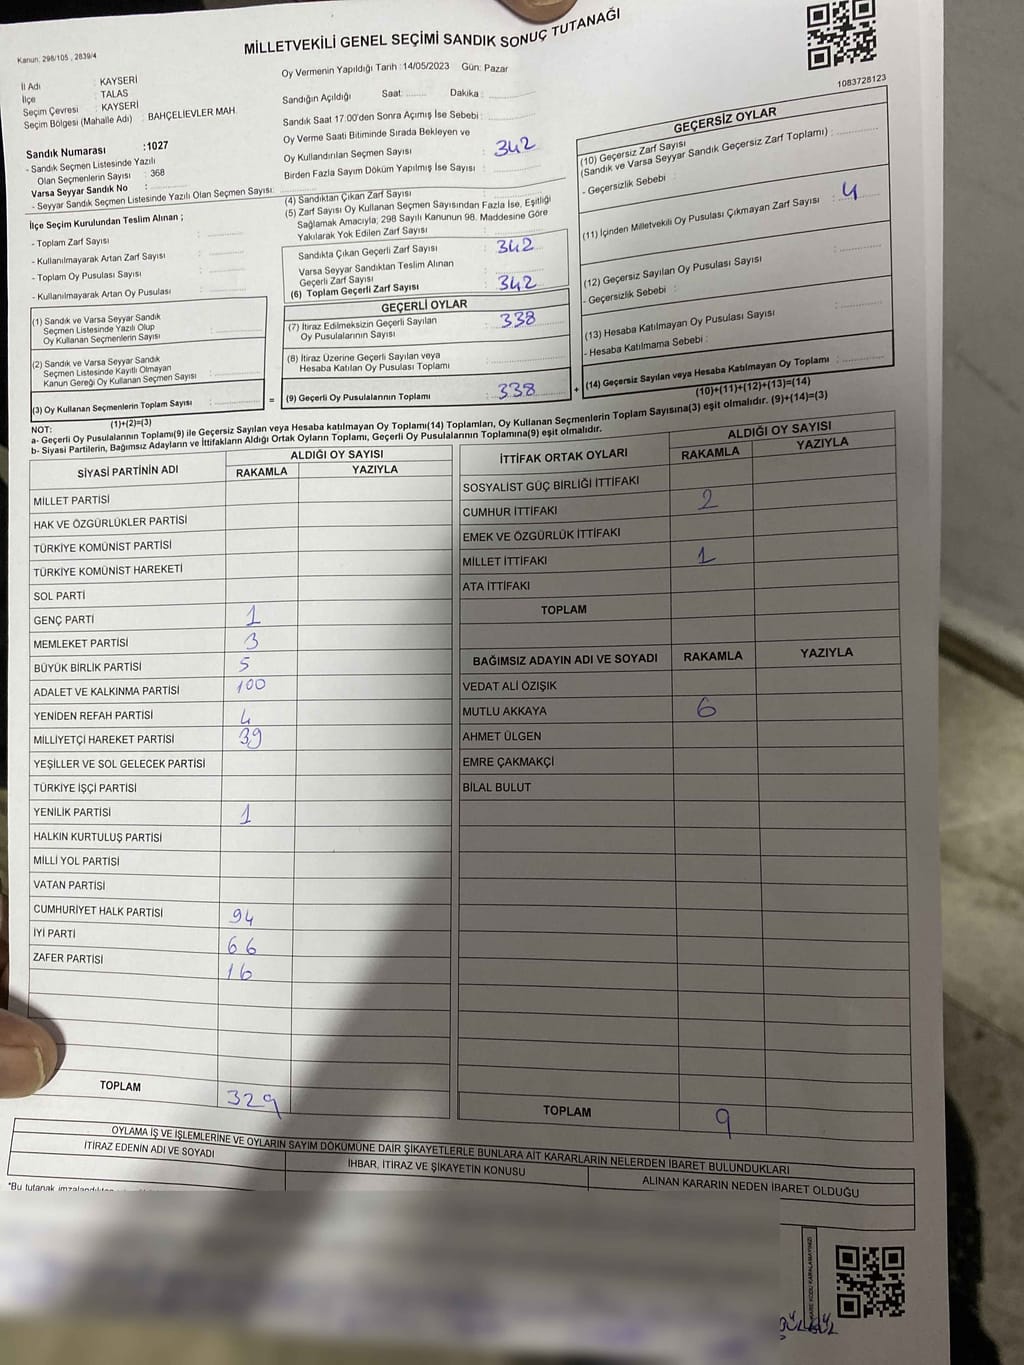 Kanun, 298/105 , 2839/4
MİLLETVEKİLİ GENEL SEÇİMİ SANDIK SONUÇ TUTANAĞI
1083728123
İl Adı : KAYSERİ
İlçe : TALAS
Seçim Çevresi : KAYSERİ
Seçim Bölgesi (Mahalle Adı) : BAHÇELİEVLER MAH.
Sandık Numarası :1027
- Sandık Seçmen Listesinde Yazılı
Olan Seçmenlerin Sayısı : 368
Varsa Seyyar Sandık No :
- Seyyar Sandık Seçmen Listesinde Yazılı Olan Seçmen Sayısı:
İlçe Seçim Kurulundan Teslim Alınan ;
- Toplam Zarf Sayısı :
- Kullanılmayarak Artan Zarf Sayısı :
- Toplam Oy Pusulası Sayısı :
- Kullanılmayarak Artan Oy Pusulası :
(1) Sandık ve Varsa Seyyar Sandık
Seçmen Listesinde Yazılı Olup
Oy Kullanan Seçmenlerin Sayısı :
(2) Sandık ve Varsa Seyyar Sandık
Seçmen Listesinde Kayıtlı Olmayan
Kanun Gereği Oy Kullanan Seçmen Sayısı :
(3) Oy Kullanan Seçmenlerin Toplam Sayısı :
(1)+(2)=(3)
Oy Vermenin Yapıldığı Tarih :14/05/2023 Gün: Pazar
Sandığın Açıldığı Saat: Dakika :
Sandık Saat 17:00'den Sonra Açımış İse Sebebi :
Oy Verme Saati Bitiminde Sırada Bekleyen ve
Oy Kullandırılan Seçmen Sayısı : 342
Birden Fazla Sayım Döküm Yapılmış İse Sayısı :
(4) Sandıktan Çıkan Zarf Sayısı :
(5) Zarf Sayısı Oy Kullanan Seçmen Sayısından Fazla İse, Eşitliği
Sağlamak Amacıyla; 298 Sayılı Kanunun 98. Maddesine Göre
Yakılarak Yok Edilen Zarf Sayısı :
Sandıkta Çıkan Geçerli Zarf Sayısı : 342
Varsa Seyyar Sandıktan Teslim Alınan
Geçerli Zarf Sayısı :
(6) Toplam Geçerli Zarf Sayısı : 342
GEÇERLİ OYLAR
(7) İtiraz Edilmeksizin Geçerli Sayılan
Oy Pusulalarının Sayısı : 338
(8) İtiraz Üzerine Geçerli Sayılan veya
Hesaba Katılan Oy Pusulası Toplamı :
= (9) Geçerli Oy Pusulalarının Toplamı : 338 +
GEÇERSİZ OYLAR
(10) Geçersiz Zarf Sayısı
(Sandık ve Varsa Seyyar Sandık Geçersiz Zarf Toplamı) :
- Geçersizlik Sebebi :
(11) İçinden Milletvekili Oy Pusulası Çıkmayan Zarf Sayısı : 4
(12) Geçersiz Sayılan Oy Pusulası Sayısı :
- Geçersizlik Sebebi :
(13) Hesaba Katılmayan Oy Pusulası Sayısı :
- Hesaba Katılmama Sebebi :
(14) Geçersiz Sayılan veya Hesaba Katılmayan Oy Toplamı :
(10)+(11)+(12)+(13)=(14)
NOT:
a- Geçerli Oy Pusulalarının Toplamı(9) ile Geçersiz Sayılan veya Hesaba katılmayan Oy Toplamı(14) Toplamları, Oy Kullanan Seçmenlerin Toplam Sayısına(3) eşit olmalıdır. (9)+(14)=(3)
b- Siyasi Partilerin, Bağımsız Adayların ve İttifakların Aldığı Ortak Oyların Toplamı, Geçerli Oy Pusulalarının Toplamına(9) eşit olmalıdır.
SİYASİ PARTİNİN ADI ALDIĞI OY SAYISI
RAKAMLA YAZIYLA
MİLLET PARTİSİ
HAK VE ÖZGÜRLÜKLER PARTİSİ
TÜRKİYE KOMÜNİST PARTİSİ
TÜRKİYE KOMÜNİST HAREKETİ
SOL PARTİ
GENÇ PARTİ 1
MEMLEKET PARTİSİ 3
BÜYÜK BİRLİK PARTİSİ 5
ADALET VE KALKINMA PARTİSİ 100
YENİDEN REFAH PARTİSİ 4
MİLLİYETÇİ HAREKET PARTİSİ 39
YEŞİLLER VE SOL GELECEK PARTİSİ
TÜRKİYE İŞÇİ PARTİSİ
YENİLİK PARTİSİ 1
HALKIN KURTULUŞ PARTİSİ
MİLLİ YOL PARTİSİ
VATAN PARTİSİ
CUMHURİYET HALK PARTİSİ 94
İYİ PARTİ 66
ZAFER PARTİSİ 16
TOPLAM 329
İTTİFAK ORTAK OYLARI ALDIĞI OY SAYISI
RAKAMLA YAZIYLA
SOSYALİST GÜÇ BİRLİĞİ İTTİFAKI
CUMHUR İTTİFAKI 2
EMEK VE ÖZGÜRLÜK İTTİFAKI
MİLLET İTTİFAKI 1
ATA İTTİFAKI
TOPLAM
BAĞIMSIZ ADAYIN ADI VE SOYADI RAKAMLA YAZIYLA
VEDAT ALİ ÖZIŞIK
MUTLU AKKAYA 6
AHMET ÜLGEN
EMRE ÇAKMAKÇİ
BİLAL BULUT
TOPLAM 9
OYLAMA İŞ VE İŞLEMLERİNE VE OYLARIN SAYIM DÖKÜMÜNE DAİR ŞİKAYETLERLE BUNLARA AİT KARARLARIN NELERDEN İBARET BULUNDUKLARI
İTİRAZ EDENİN ADI VE SOYADI İHBAR, İTİRAZ VE ŞİKAYETİN KONUSU ALINAN KARARIN NEDEN İBARET OLDUĞU
*Bu tutanak